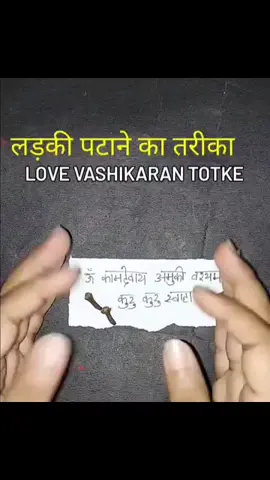 लड़की पटाने का तरीका
LOVE VASHIKARAN TOTKE
ॐ कामदेवाय अमुकी वश्यम
कुरु कुरु स्वाहा